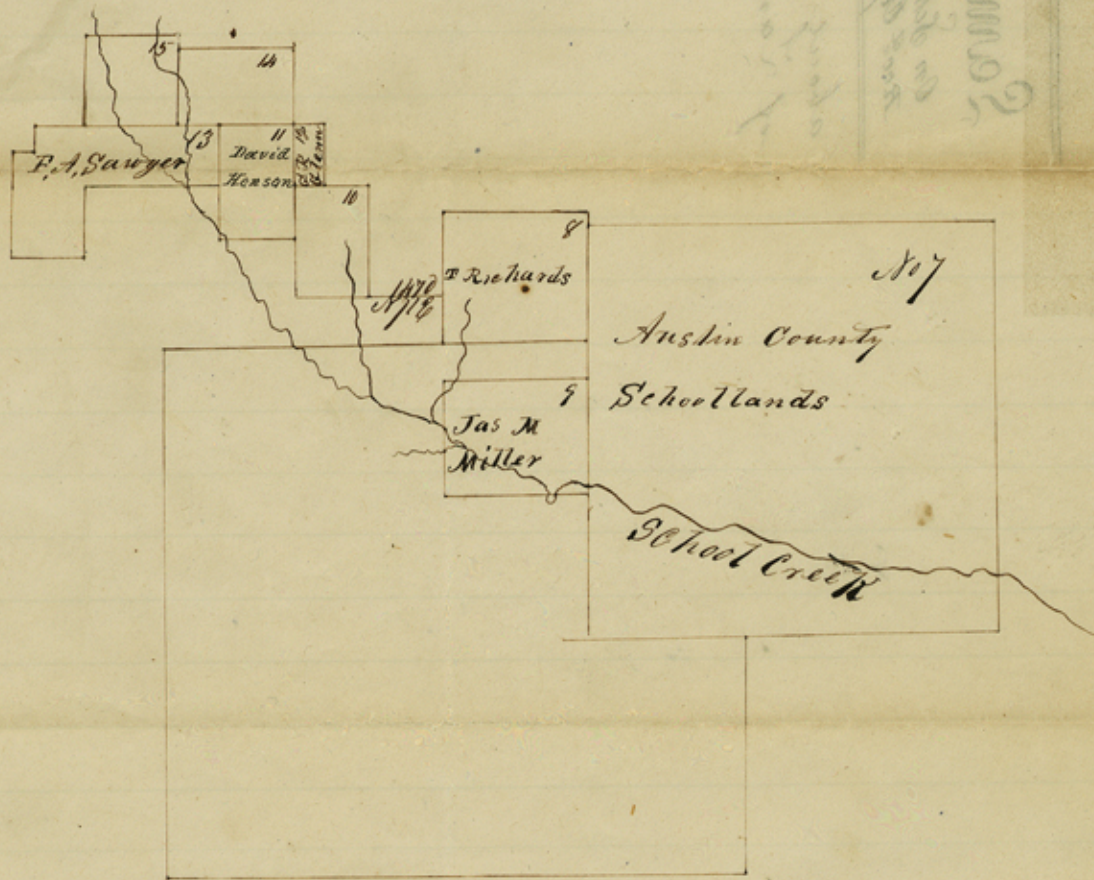 15
14
13
F. A. Sawyer
11
David
Henson
12
Glenn
10
8
T Richards
No 7
Austin County
Schoollands
9
Jas M
Miller
School Creek